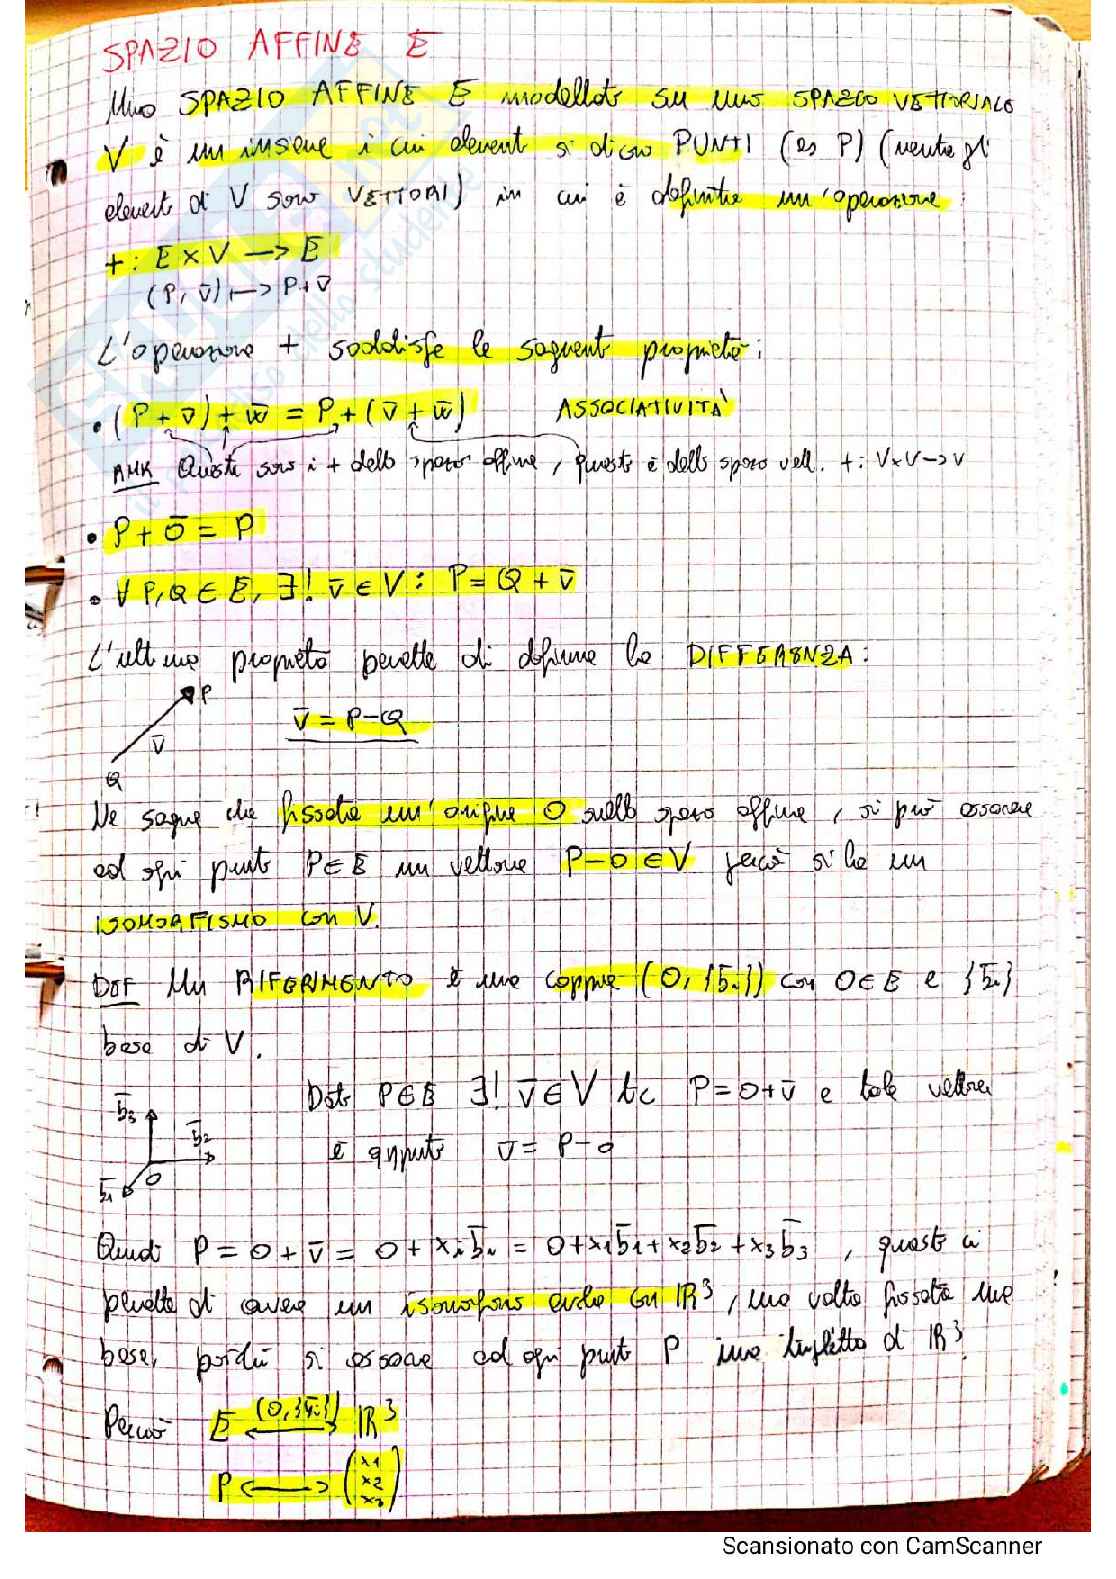 SPAZIO AFFINE E
Uno SPAZIO AFFINE E modellato su uno SPAZIO VETTORIALE
V è un insieme i cui elementi si dicono PUNTI (es P) (mentre gli
elementi di V sono VETTORI) in cui è definita un'operazione:
+: E x V → E
(P, v̄) ↦ P+v̄
L'operazione + soddisfa le seguenti proprietà:
• (P + v̄) + w̄ = P + (v̄ + w̄) ASSOCIATIVITÀ
RMK Questi sono i + dello spazio affine, questo è dello spazio vett. +: V×V→V
• P + ō = P
• ∀ P,Q ∈ E, ∃! v̄ ∈ V : P = Q + v̄
L'ultima proprietà permette di definire la DIFFERENZA:
P
v̄ = P-Q
v̄
Q
Ne segue che fissata un'origine O nello spazio affine, si può associare
ad ogni punto P∈E un vettore P-O ∈ V perciò si ha un
ISOMORFISMO con V.
DEF Un RIFERIMENTO è una coppia (O, {b̄ᵢ}) con O∈E e {b̄ᵢ}
base di V.
Dato P∈E ∃! v̄∈V tc P=O+v̄ e tale vettore
è appunto v̄ = P-O
b̄3
b̄2
b̄1 O
Quindi P = O + v̄ = O + xᵢb̄ᵢ = O + x1b̄1 + x2b̄2 + x3b̄3, questo ci
permette di avere un isomorfismo anche con ℝ³, una volta fissata una
base, perché si associa ad ogni punto P una tripletta di ℝ³.
Perciò E ⟷ ℝ³
(O,{b̄ᵢ})
P ⟷ (x1
x2
x3)
Scansionato con CamScanner